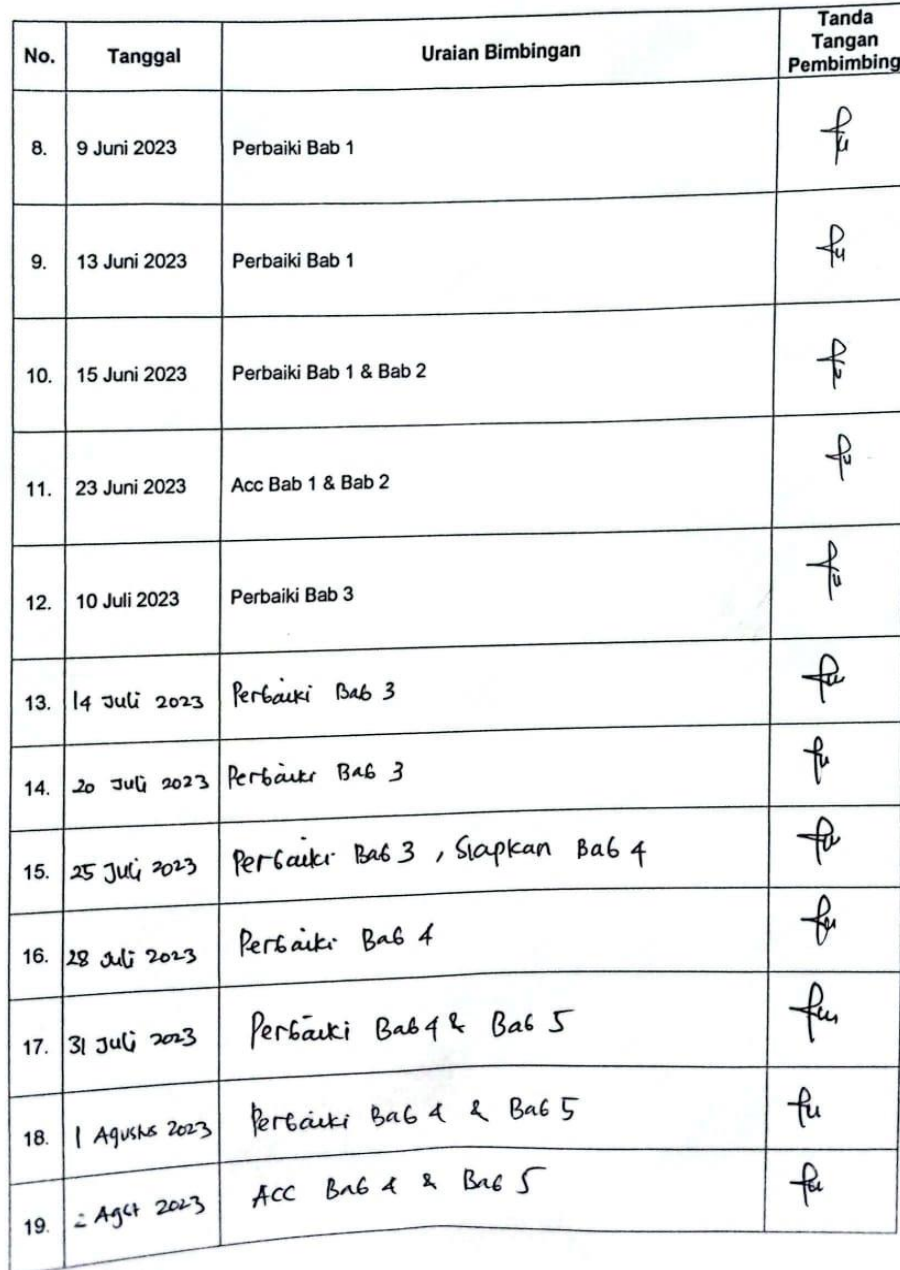 No. Tanggal Uraian Bimbingan Tanda Tangan Pembimbing
8. 9 Juni 2023 Perbaiki Bab 1
9. 13 Juni 2023 Perbaiki Bab 1
10. 15 Juni 2023 Perbaiki Bab 1 & Bab 2
11. 23 Juni 2023 Acc Bab 1 & Bab 2
12. 10 Juli 2023 Perbaiki Bab 3
13. 14 Juli 2023 Perbaiki Bab 3
14. 20 Juli 2023 Perbaiki Bab 3
15. 25 Juli 2023 Perbaiki Bab 3, Siapkan Bab 4
16. 28 Juli 2023 Perbaiki Bab 4
17. 31 Juli 2023 Perbaiki Bab 4 & Bab 5
18. 1 Agustus 2023 Perbaiki Bab 4 & Bab 5
19. Agst 2023 ACC Bab 4 & Bab 5